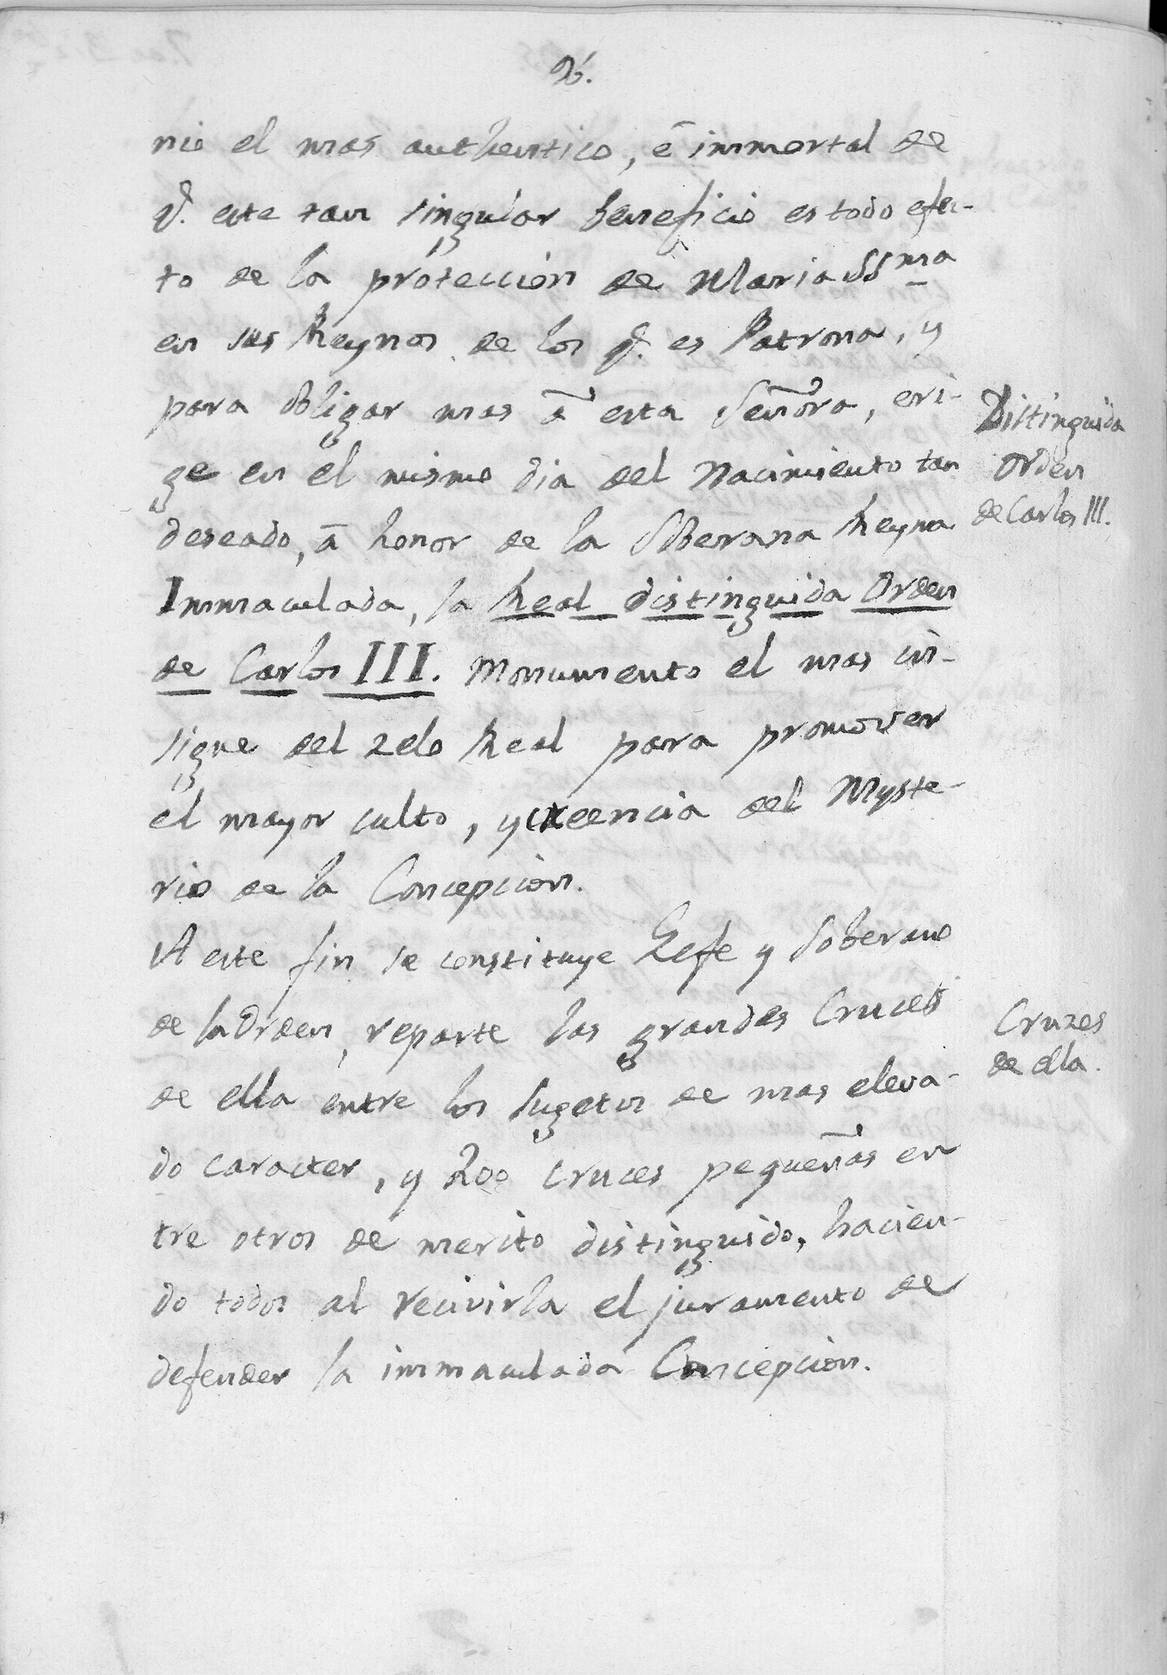 26.
nio el mas authentico, è immortal de
q.e este tan singular beneficio es todo efec-
to de la protección de Maria SSma
en sus Reynos de los q.e es Patrona, y
para obligar mas à esta Señora, eri-
ge en el mismo dia del Nacimiento tan
deseado, à honor de la Soberana Reyna
Immaculada, la Real distinguida Orden
de Carlos III. Monumento el mas in-
signe del zelo Real para promover
el mayor culto, y creencia del Myste-
rio de la Concepcion.
A este fin se constituye Gefe y Soberano
de la Orden, reparte las grandes Cruces
de ella entre los Sugetos de mas eleva-
do caracter, y 200 cruces pequeñas en
tre otros de merito distinguido, hacien-
do todos al recivirla el juramento de
defender la immaculada Concepcion.
Distinguida
Orden
de Carlos III.
Cruzes
de ella.